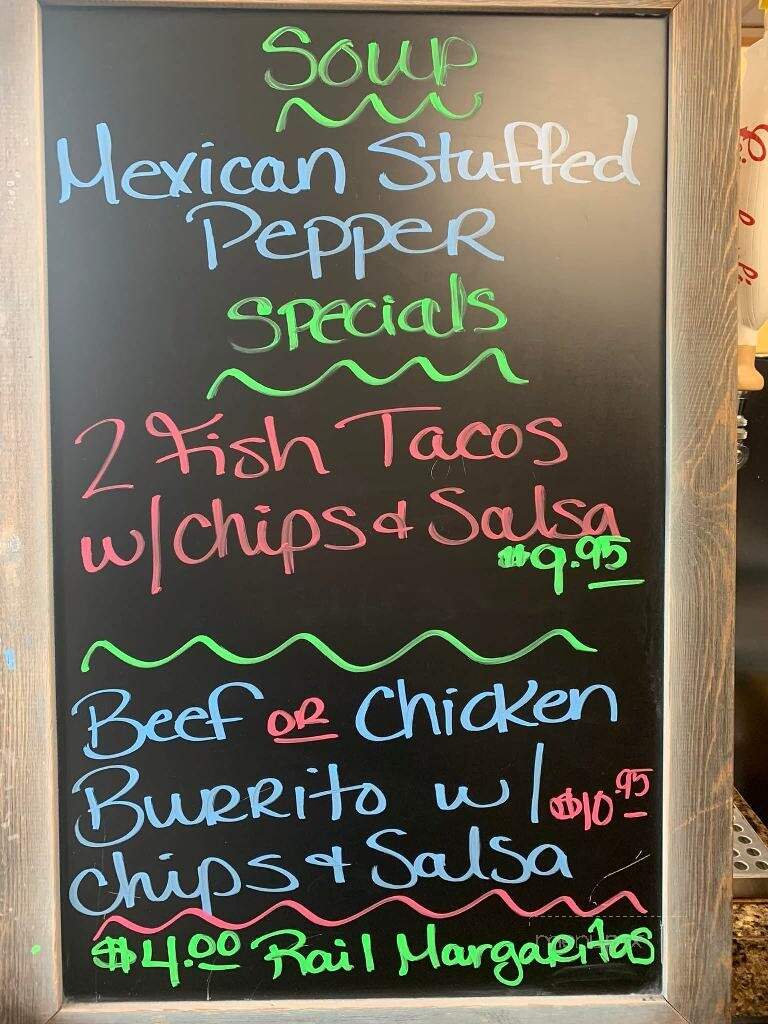 Soup
Mexican Stuffed
Pepper
Specials
2 Fish Tacos
w/chips & Salsa
$9.95
Beef OR Chicken
Burrito w/ $10.95
chips & Salsa
$4.00 Rail Margaritas